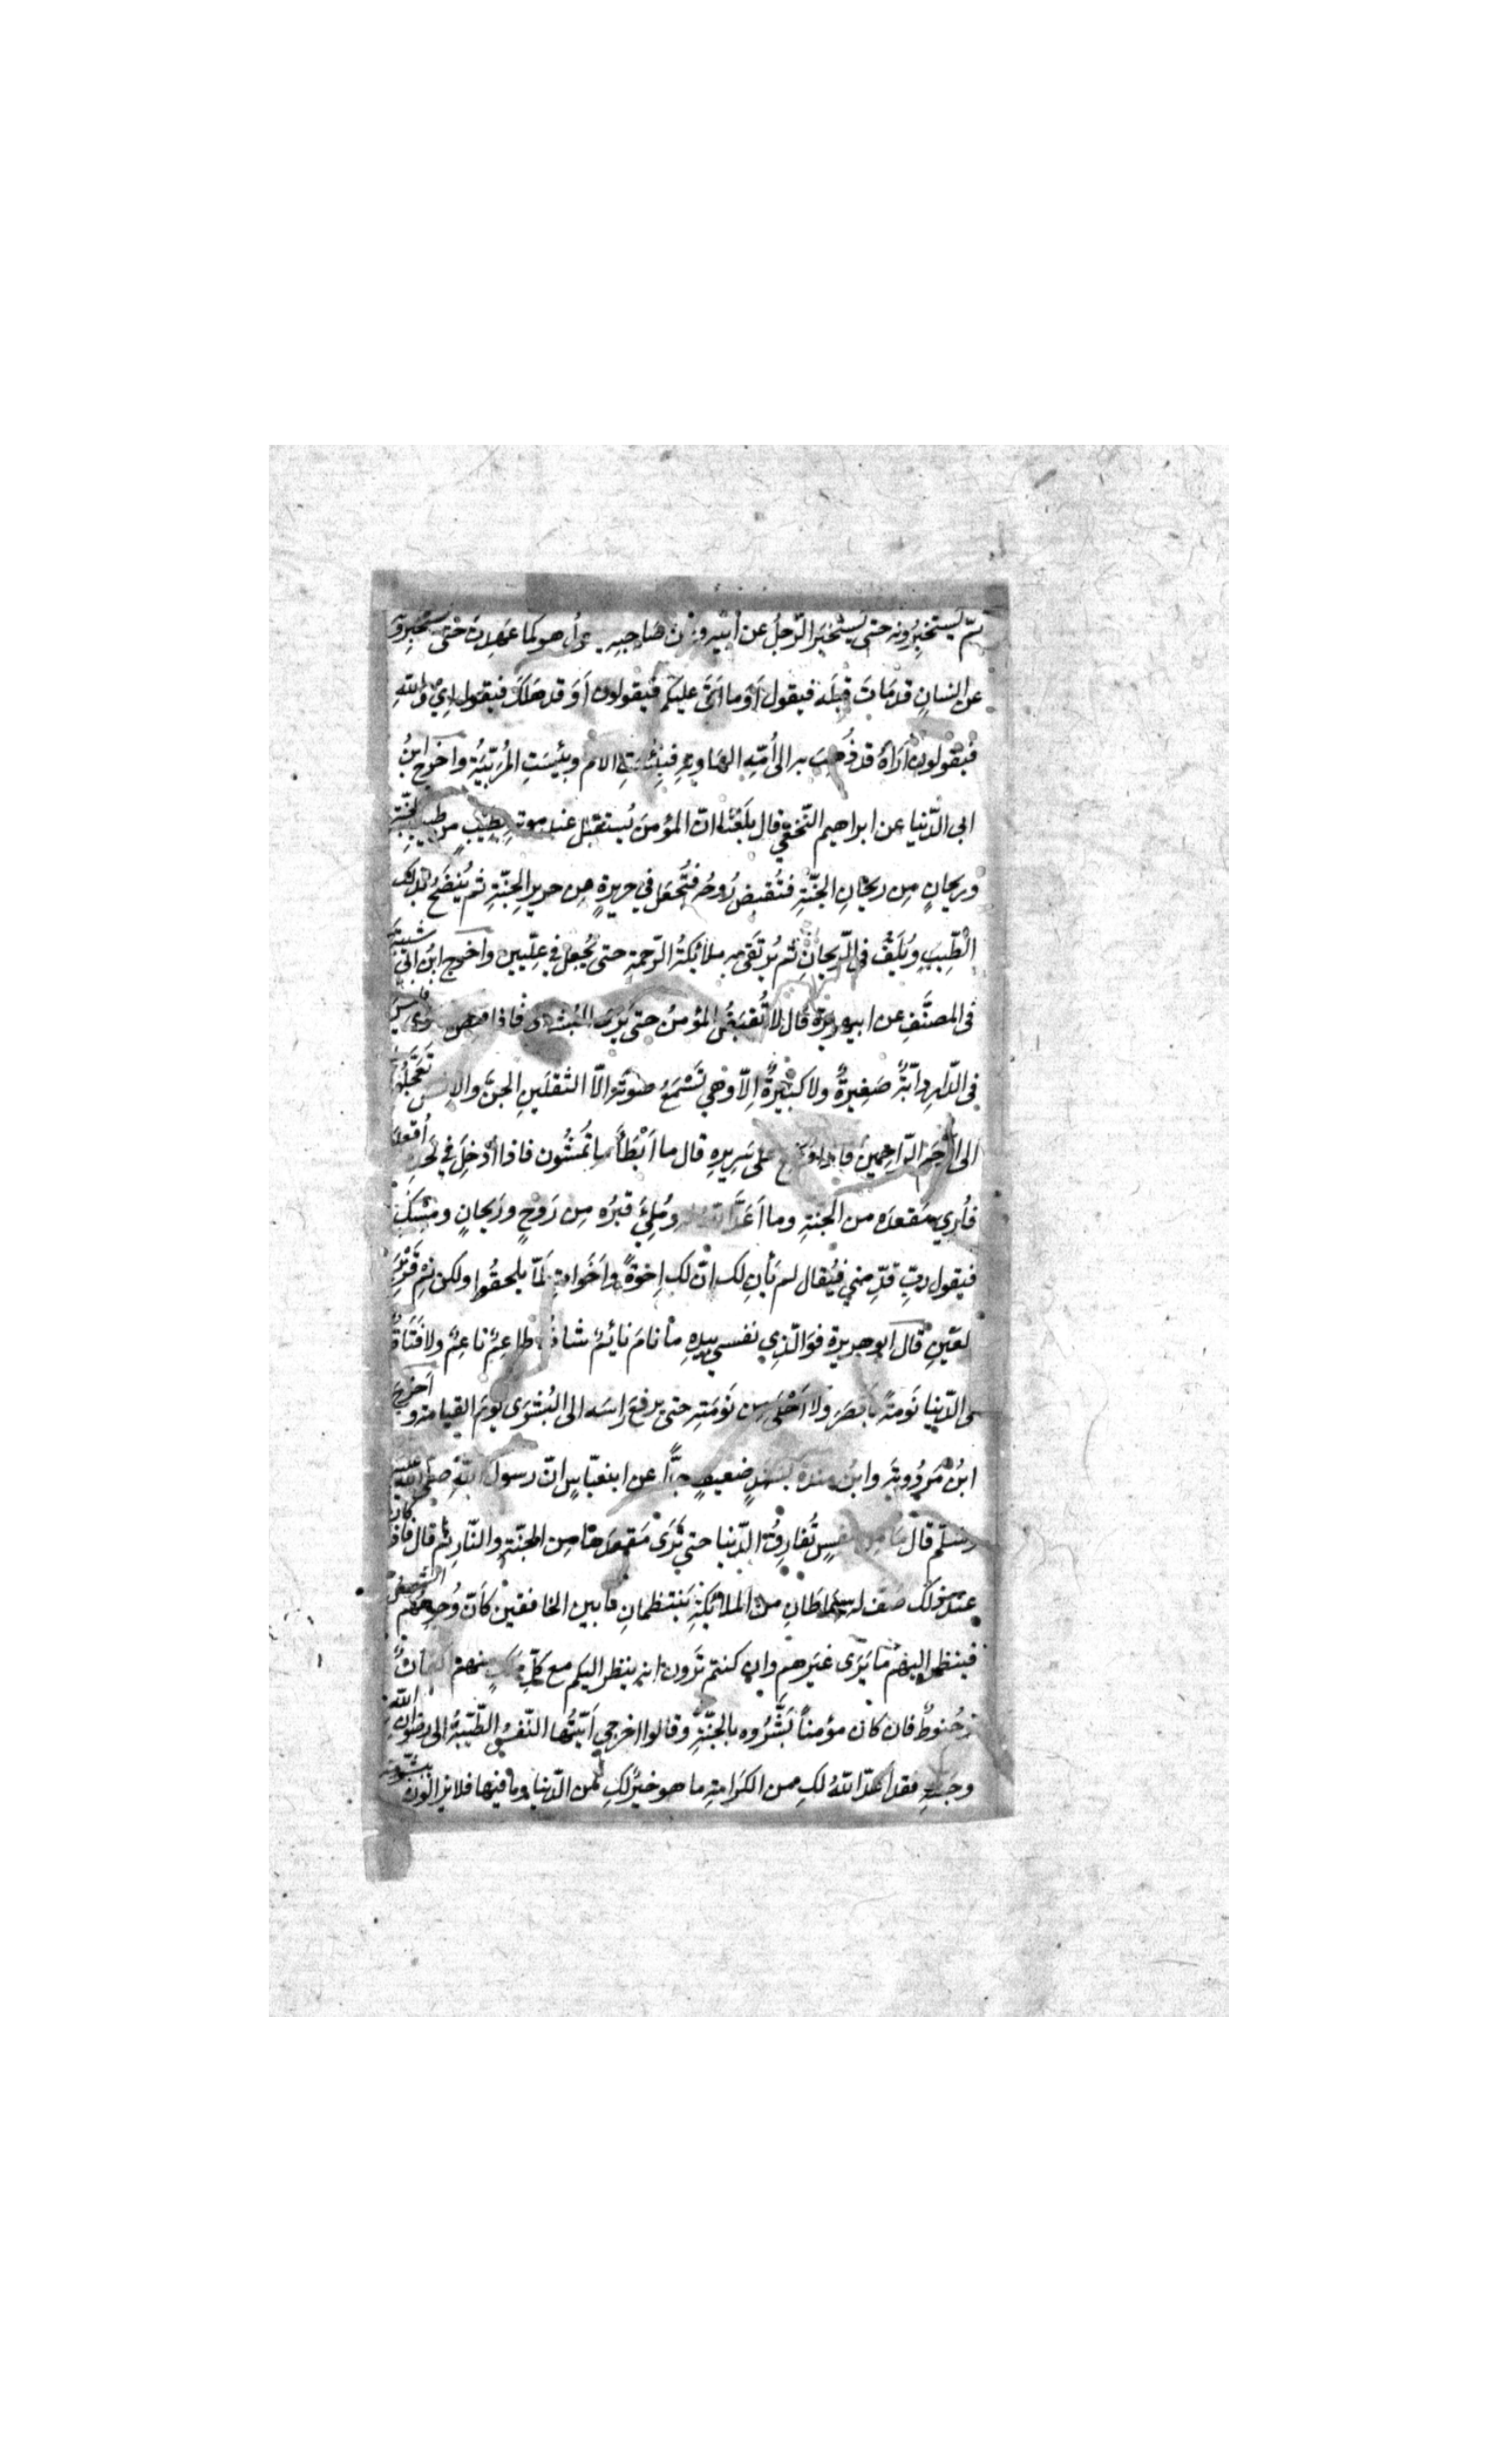 ثمّ يستخبرونه حتى يستخبر الرّجلُ عن ابنه وعن صاحبه هل هو كما عهدت حتى يستخبروه
عن انسانٍ قد مَاتَ قبلَه فيقول أوَ ما اتَى عليكم فيقولون أوَ قد هَلَكَ فيقول إي والله
فيقولون أراهُ قد ذُهبَ به الى أُمّهِ الهاويةِ فبِئْسَتِ الام وبِئسَتِ المُربّيَةُ واخرج ابنُ
ابى الدّنيا عن ابراهيم النّخعيّ قال بلَغَنا انّ المؤمنَ يُستقبل عند موته بطِيبٍ من طيب الجنّةِ
وريحانٍ مِن ريحانِ الجنّةِ فتُقبض رُوحُه فتُجعَل في حريرةٍ مِن حريرِ الجنّةِ ثم يُنضَحُ بذلك
الطّيبِ ويُلَفُّ في الرّيحانِ ثم يُرتَقى به ملائكةُ الرّحمةِ حتى يُجعل في عِلّيين واخرج ابنُ ابى شيبةَ
فى المصنَّفِ عن ابيهريرة قال لا تُقبَضُ المؤمنُ حتى يَرَى البُشرى فاذا قبض نادى فليسَ
في الدّارِ دابّةٌ صَغِيرةٌ ولا كَبِيرةٌ اِلاّ وهي تَسْمَعُ صوتَه الاّ الثقلَينِ الجنّ والانس تعجّلُوا به
الى ارْحَمِ الرّاحِمِينَ فاذا وُضِعَ على سَرِيرِهِ قال ما اَبْطَأَ ما تُمشُون فاذا أُدْخِلَ في لَحْدِهِ أُقعِدَ
فأُرِيَ مَقعدَه من الجنّةِ وما اَعَدَّ اللهُ له ومُلِئَ قبرُه مِن رَوْحٍ ورَيحانٍ ومِسْكٍ
فيقول ربِّ قدِّمني فيُقال لم يَأنِ لك انّ لك اِخوةً واَخَواتٍ لمّا يلحقُوا ولكن نَمْ قَرِيرَ
العَيْنِ قال ابو هريرة فوَالّذِي نفسي بيدِهِ ما نامَ نائمٌ شابٌّ طاعِمٌ ناعِمٌ ولا فَتَاةٌ
في الدّنيا نَومَةً بأقصَرَ ولا اَحْلَى مِن نَومَتِهِ حتى يرفعَ راسَه الى البُشرَى يومَ القيامة واَخرجَ
ابنُ مَردُويَةَ وابنُ مندة بسندٍ ضعيفٍ جدًّا عن ابنعبّاسٍ انّ رسول اللّهِ صلى الله عليه
وسلّم قال مَا مِن نفسٍ تُفارقُ الدّنيا حتى تَرَى مَقعدَها مِن الجنّةِ والنّارِ ثم قال فاذا كان
عند ذلك صَفّ له سِماطانِ من الملائكةِ يَنتظمانِ ما بين الخافقين كأنّ وُجوهَهُم الشّمسُ
فينظر اليهم ما يَرَى غيرهم وان كنتم تَرَون انه ينظر اليكم مع كلِّ مَلَكٍ منهم اكفانٌ
وحُنوطٌ فان كان مؤمناً بَشَّرُوه بالجنّةِ وقالوا اخرجي اَيّتُها النّفسُ الطّيّبةُ الى رضوانِ الله
وجنّتِهِ فقد اَعَدّ اللهُ لكِ من الكَرامةِ ما هو خيرٌ لكِ من الدّنيا وما فيها فلا يزالون يبشّرونه